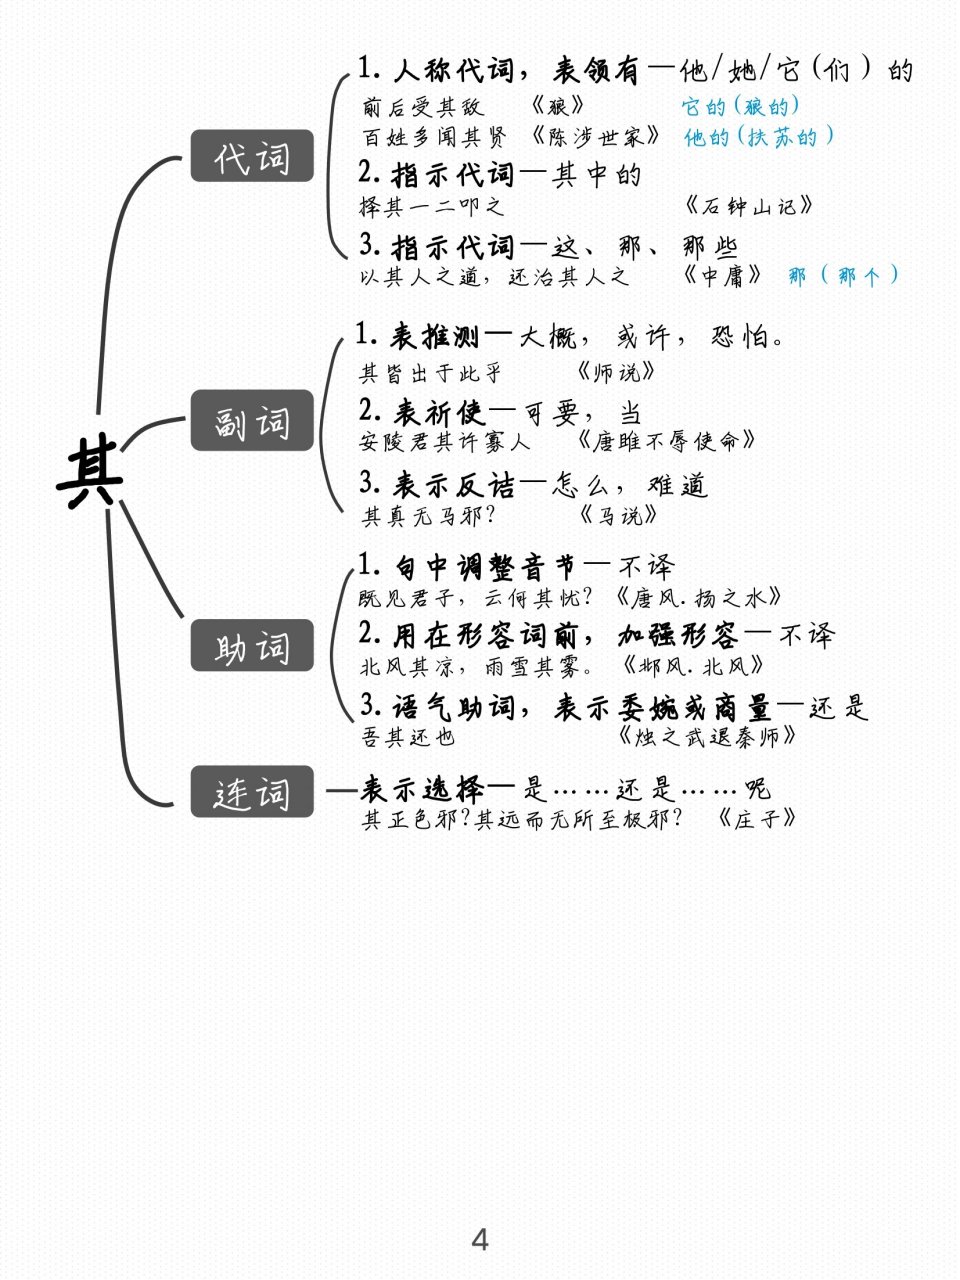 其
代词
1. 人称代词，表领有—他/她/它(们）的
前后受其敌 《狼》 它的(狼的)
百姓多闻其贤 《陈涉世家》 他的(扶苏的)
2. 指示代词—其中的
择其一二叩之 《石钟山记》
3. 指示代词—这、那、那些
以其人之道，还治其人之 《中庸》 那（那个）
副词
1. 表推测—大概，或许，恐怕。
其皆出于此乎 《师说》
2. 表祈使—可要，当
安陵君其许寡人 《唐雎不辱使命》
3. 表示反诘—怎么，难道
其真无马邪？ 《马说》
助词
1. 句中调整音节—不译
既见君子，云何其忧？《唐风.扬之水》
2. 用在形容词前，加强形容—不译
北风其凉，雨雪其雾。 《邶风.北风》
3. 语气助词，表示委婉或商量—还是
吾其还也 《烛之武退秦师》
连词
表示选择—是……还是……呢
其正色邪？其远而无所至极邪？ 《庄子》
4